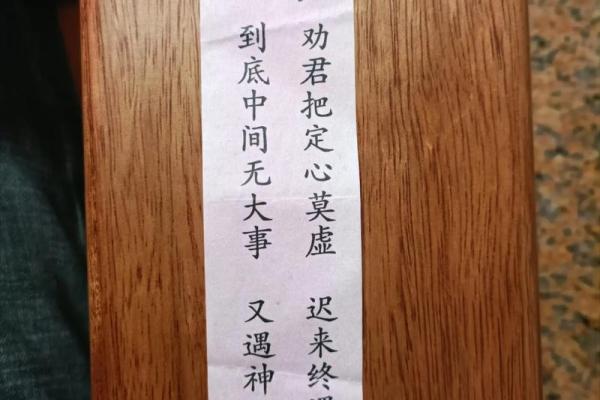 劝君把定心莫虚 迟来终
到底中间无大事 又遇神